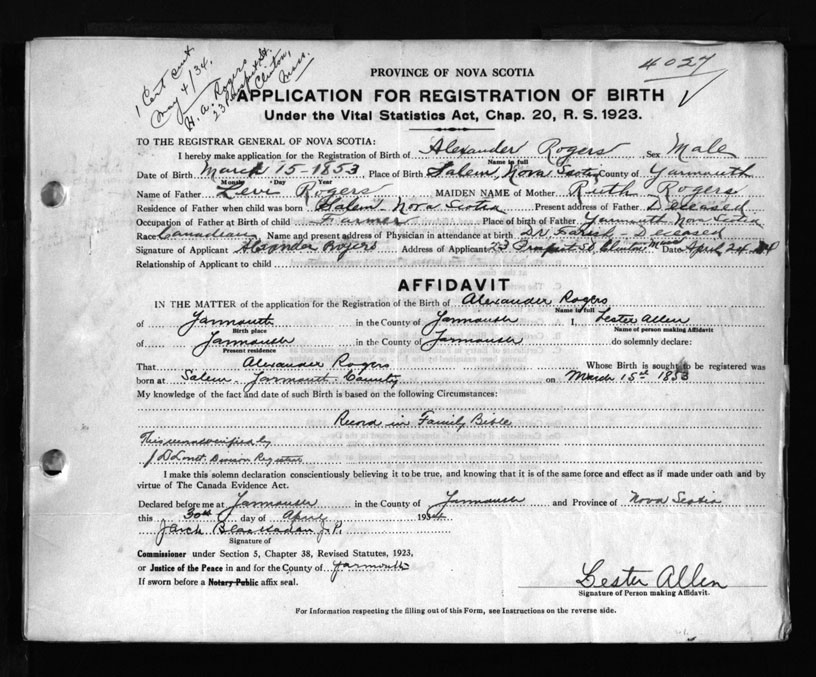 1 Cert sent
May 4/34.
H. A. Rogers
23 Prospect St.
Clinton,
Mass.
4027
PROVINCE OF NOVA SCOTIA
APPLICATION FOR REGISTRATION OF BIRTH
Under the Vital Statistics Act, Chap. 20, R. S. 1923.
TO THE REGISTRAR GENERAL OF NOVA SCOTIA:
I hereby make application for the Registration of Birth of Alexander Rogers Sex Male
Name in full
Date of Birth March 15-1853 Place of Birth Salem, Nova Scotia County of Yarmouth
Month Day Year
Name of Father Levi Rogers MAIDEN NAME of Mother Ruth Rogers
Residence of Father when child was born Salem - Nova Scotia Present address of Father Deceased
Occupation of Father at Birth of child Farmer Place of birth of Father Yarmouth Nova Scotia
Race Canadian Name and present address of Physician in attendance at birth Dr. Farish - Deceased
Signature of Applicant Alexander Rogers Address of Applicant 23 Prospect St Clinton Mass Date April 24
Relationship of Applicant to child
AFFIDAVIT
IN THE MATTER of the application for the Registration of the Birth of Alexander Rogers
Name in full
of Yarmouth in the County of Yarmouth I, Lester Allen
Birth place Name of person making Affidavit
of Yarmouth in the County of Yarmouth do solemnly declare:
Present residence
That Alexander Rogers Whose Birth is sought to be registered was
born at Salem - Yarmouth County on March 15th 1853
My knowledge of the fact and date of such Birth is based on the following Circumstances:
Record in Family Bible
This record verified by
Division Registrar
I make this solemn declaration conscientiously believing it to be true, and knowing that it is of the same force and effect as if made under oath and by
virtue of The Canada Evidence Act.
Declared before me at Yarmouth in the County of Yarmouth and Province of Nova Scotia
this 30th day of April 1934
J.P.
Signature of
Commissioner under Section 5, Chapter 38, Revised Statutes, 1923,
or Justice of the Peace in and for the County of Yarmouth
If sworn before a Notary Public affix seal.
Lester Allen
Signature of Person making Affidavit.
For Information respecting the filling out of this Form, see Instructions on the reverse side.